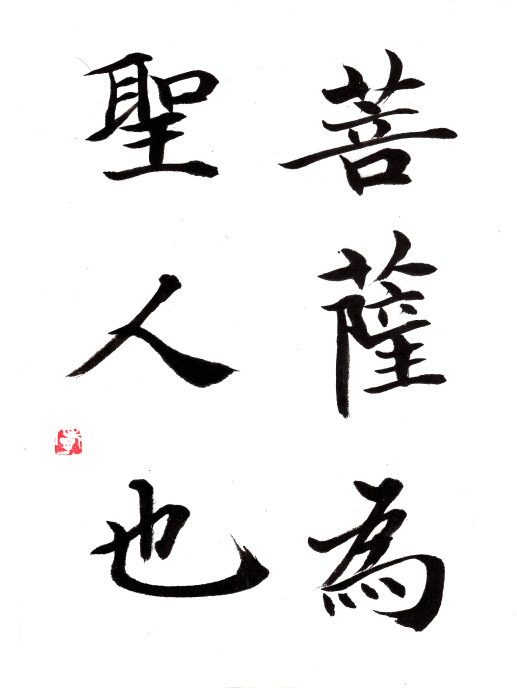 菩薩為
聖人也